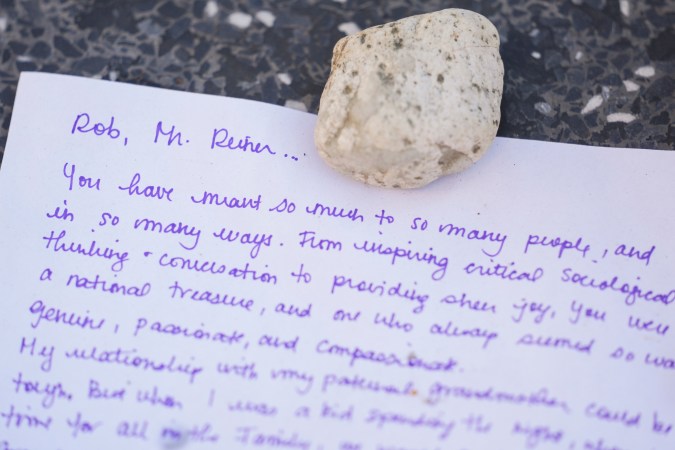 Rob, Mr. Reiner...
You have meant so much to so many people, and
in so many ways. From inspiring critical sociological
thinking + conversation to providing sheer joy, you were
a national treasure, and one who always seemed so wa
genuine, passionate, and compassionate.
My relationship with my paternal grandmother could be
tough. But when I was a kid spending the night,
time for all in the Family,